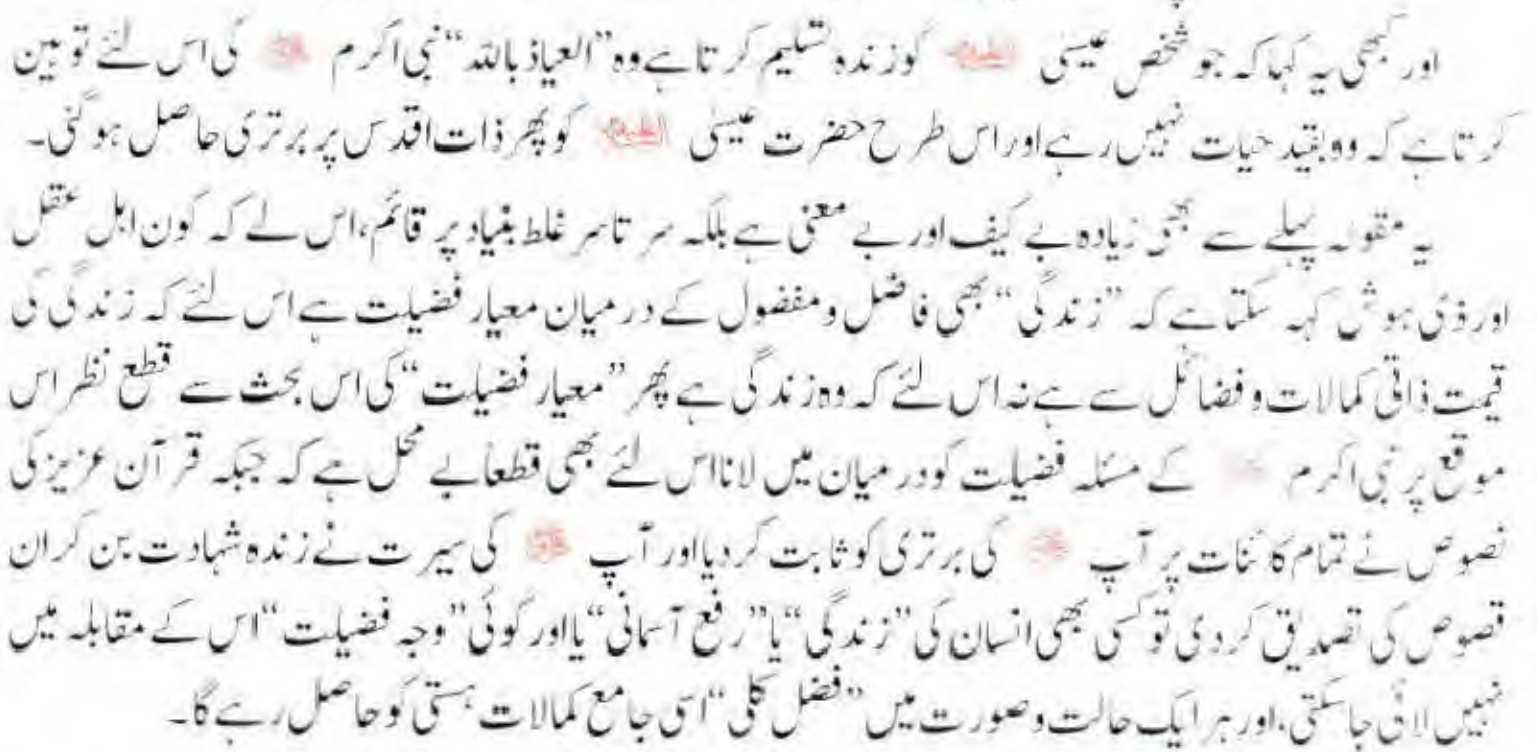 اور کبھی یہ کہا کہ جو شخص عیسیٰ علیہ السلام کو زندہ تسلیم کرتا ہے وہ ”العیاذ باللہ“ نبی اکرم ﷺ کی اس لئے توہین
کرتا ہے کہ وہ بقید حیات نہیں رہے اور اس طرح حضرت عیسیٰ علیہ السلام کو پھر ذات اقدس پر برتری حاصل ہو گئی۔
یہ مقولہ پہلے سے بھی زیادہ بے کیف اور بے معنی ہے بلکہ سر تا سر غلط بنیاد پر قائم، اس لے کہ کون اہل عقل
اور ذی ہوش کہہ سکتا ہے کہ ”زندگی“ بھی فاضل و مفضول کے درمیان معیار فضیلت ہے اس لئے کہ زندگی کی
قیمت ذاتی کمالات و فضائل سے ہے نہ اس لئے کہ وہ زندگی ہے پھر ”معیار فضیلت“ کی اس بحث سے قطع نظر اس
موقع پر نبی اکرم ﷺ کے مسئلہ فضیلت کو درمیان میں لانا اس لئے بھی قطعاً بے محل ہے کہ جبکہ قرآن عزیز کی
نصوص نے تمام کائنات پر آپ ﷺ کی برتری کو ثابت کر دیا اور آپ ﷺ کی سیرت نے زندہ شہادت بن کر ان
قصوص کی تصدیق کر دی تو کسی بھی انسان کی ”زندگی“ یا ”رفع آسمانی“ یا اور کوئی ”وجہ فضیلت“ اس کے مقابلہ میں
نہیں لائی جا سکتی، اور ہر ایک حالت و صورت میں ”فضل کلی“ اسی جامع کمالات ہستی کو حاصل رہے گا۔